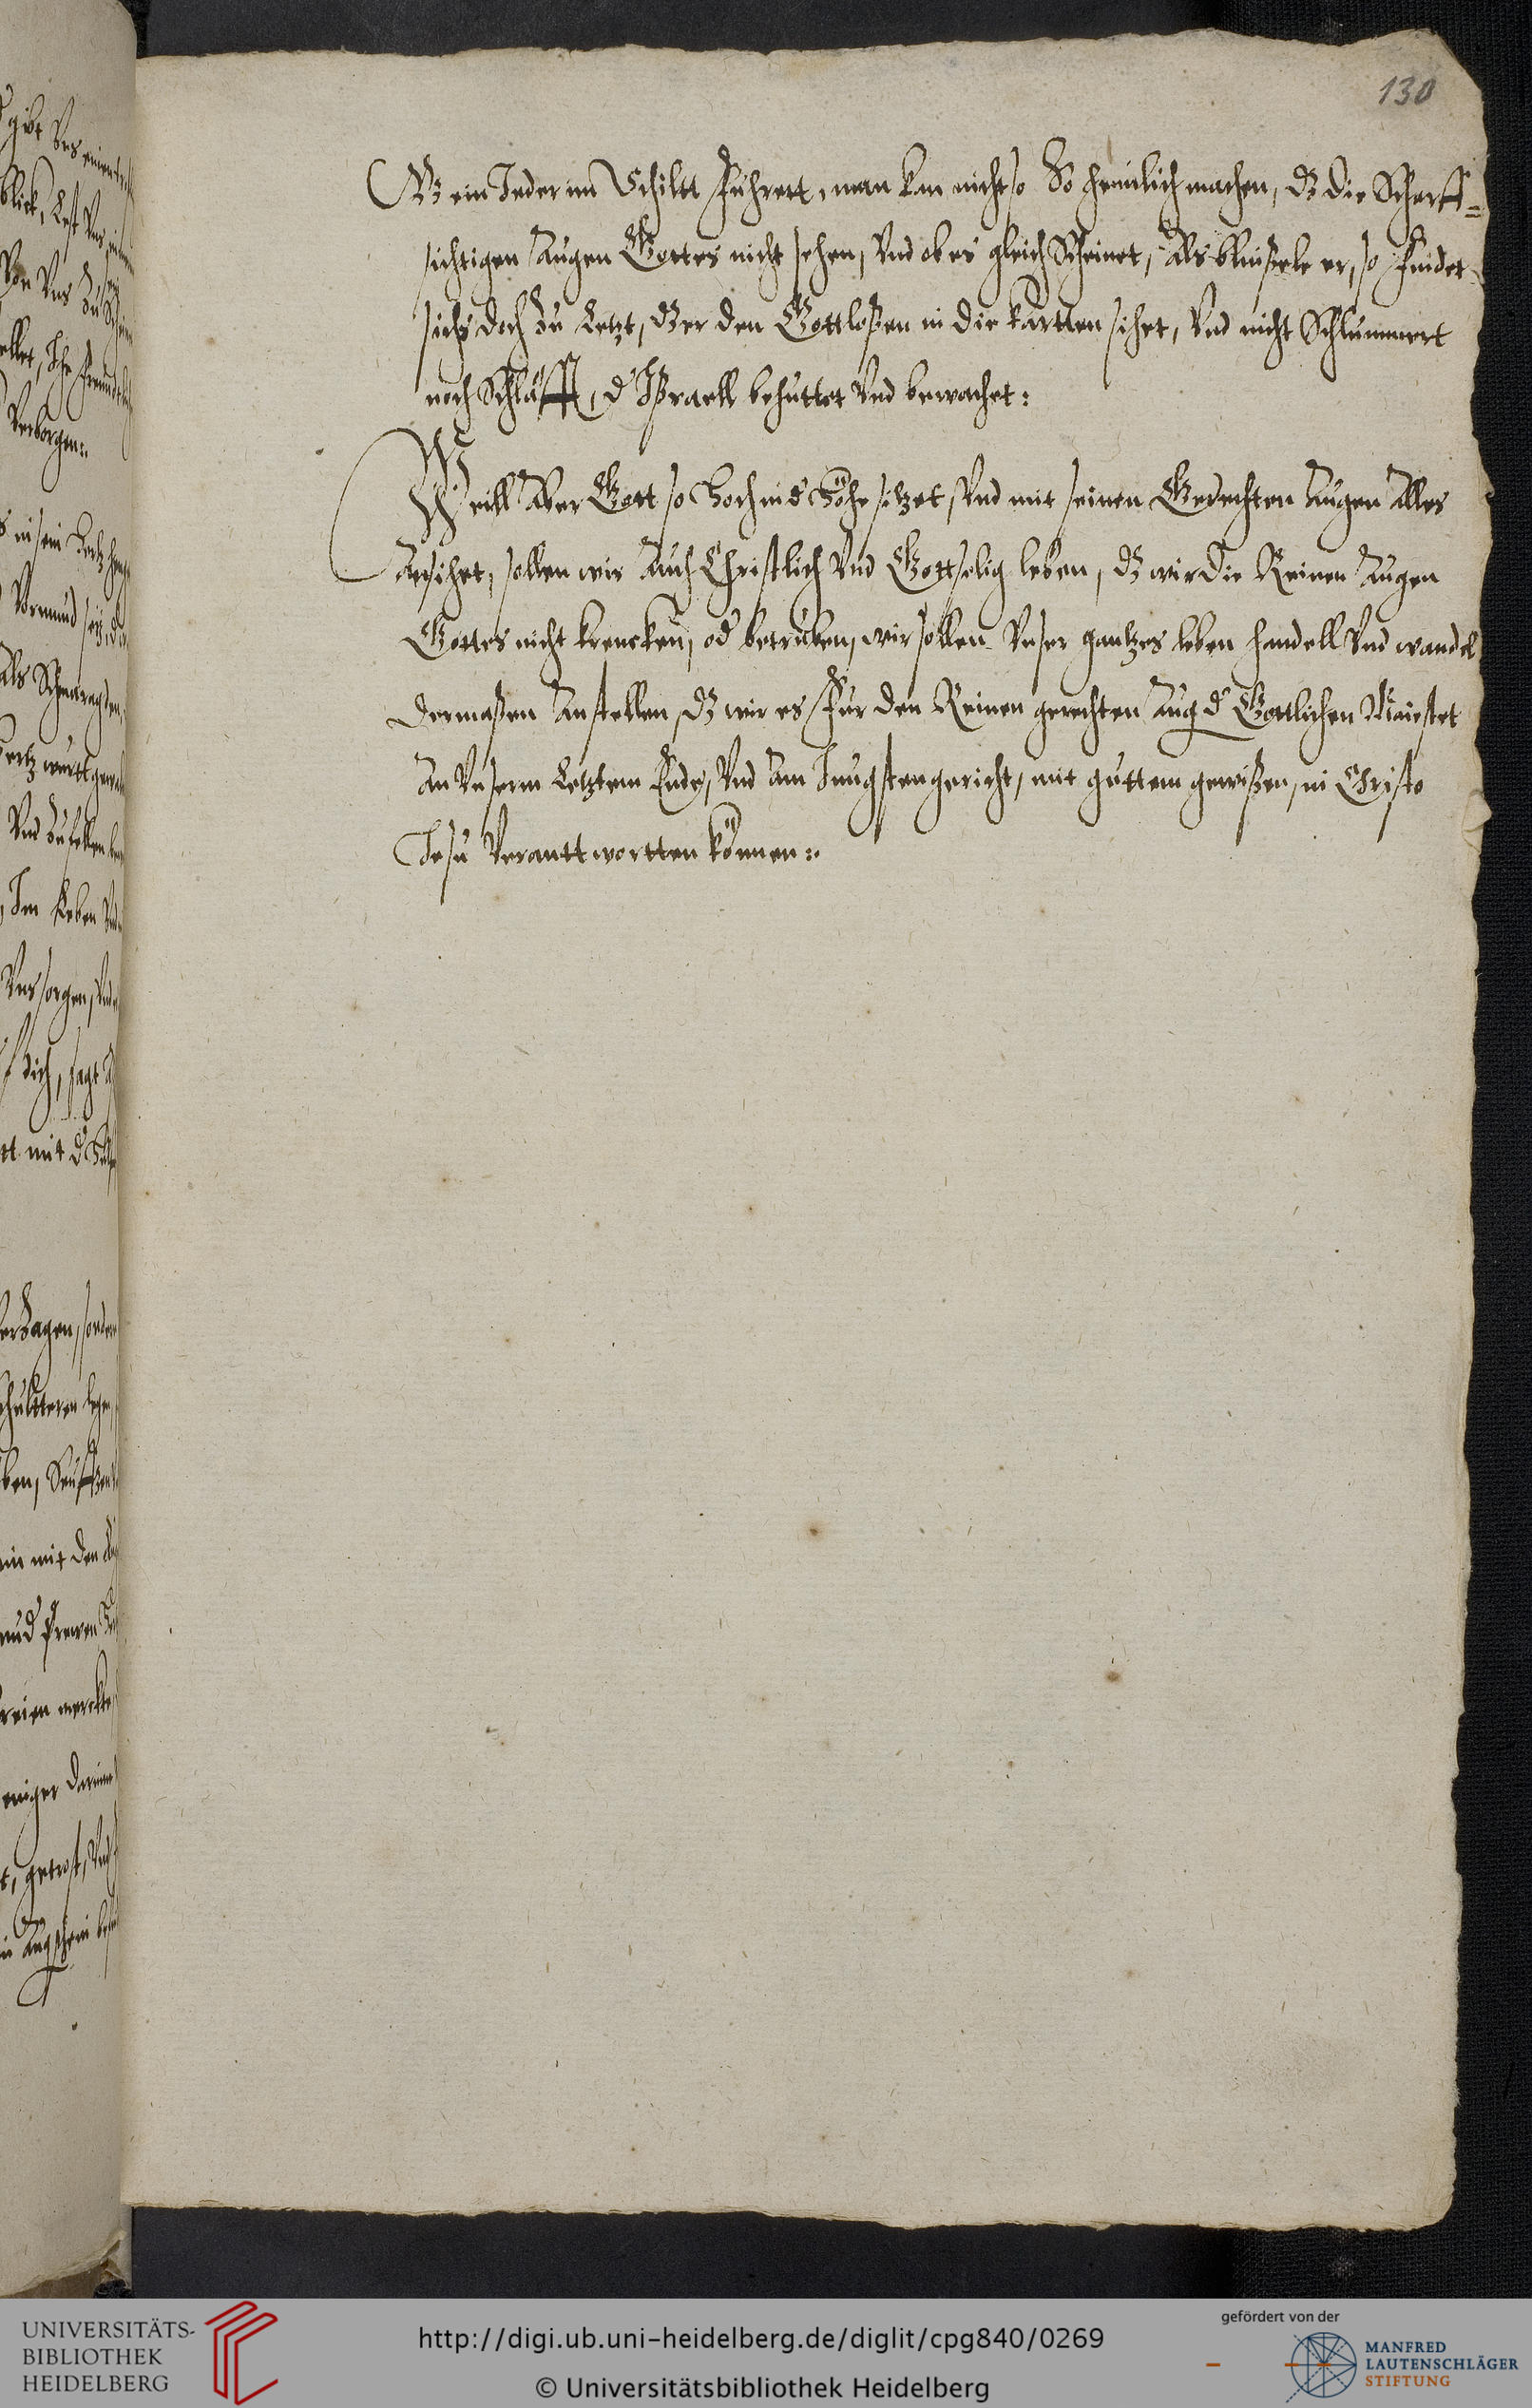 130
Wz ein Jeder im Schiltt fuhrett, man kan nichts so heimlich machen, dz die Scharff=
sichtigen Augen Gottes nicht sehen, Vnd ob es gleich Scheinet, Als blintzele er, so findet
sichs doch zu Letzt, dz er den Gottloßen in die kartten sihet, Vnd nicht Schlummert
noch Schläfft, d' Jßraell behuttet Vnd bewachet:
Weill Aber Gott so Hoch in d' Höhe sitzet, Vnd mit seinen Gerechten Augen Alles
Ansihet, sollen wir Auch Christlich Vnd Gottselig leben, dz wir die Reinen Augen
Gottes nicht krencken, od' betruben, wir sollen Vnser gantzes leben handell Vnd wandel
dermaßen Anstellen, dz wir es fur den Reinen gerechten Aug d' Gottlichen Maiestet
An Vnserm Letztem Ende, Vnd Am Jungsten gericht, mit guttem gewißen, in Christo
Jesu Verantt wortten können:.
UNIVERSITÄTS-
BIBLIOTHEK
HEIDELBERG
http://digi.ub.uni-heidelberg.de/diglit/cpg840/0269
© Universitätsbibliothek Heidelberg
gefördert von der
MANFRED
LAUTENSCHLÄGER
STIFTUNG